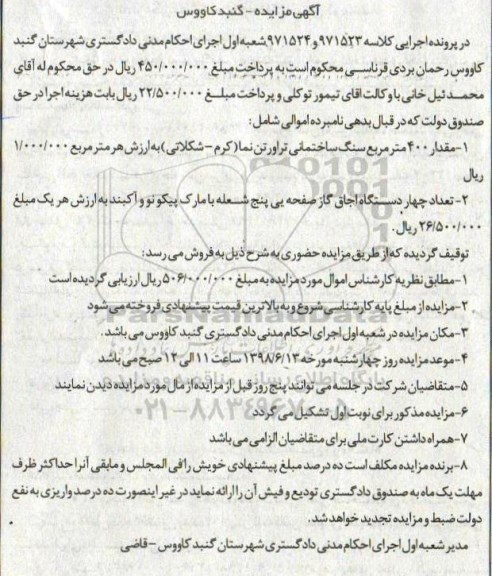 آگهی مزایده - گنبد کاووس
در پرونده اجرایی کلاسه ۹۷۱۵۲۳ و ۹۷۱۵۲۴ شعبه اول اجرای احکام مدنی دادگستری شهرستان گنبد
کاووس رحمان بردی قرناسی محکوم است به پرداخت مبلغ ۴۵۰/۰۰۰/۰۰۰ ریال در حق محکوم له آقای
محمد ئیل خانی با وکالت اقای تیمور توکلی و پرداخت مبلغ ۲۲/۵۰۰/۰۰۰ ریال بابت هزینه اجرا در حق
صندوق دولت که در قبال بدهی نامبرده اموالی شامل:
۱- مقدار ۴۰۰ متر مربع سنگ ساختمانی تراورتن نما (کرم - شکلاتی) به ارزش هر متر مربع ۱/۰۰۰/۰۰۰
ریال
۲- تعداد چهار دستگاه اجاق گاز صفحه یی پنج شعله با مارک پیکوتو و آکبند به ارزش هر یک مبلغ
۲۶/۵۰۰/۰۰۰ ریال.
توقیف گردیده که از طریق مزایده حضوری به شرح ذیل به فروش می رسد:
۱- مطابق نظریه کارشناس اموال مورد مزایده به مبلغ ۵۰۶/۰۰۰/۰۰۰ ریال ارزیابی گردیده است
۲- مزایده از مبلغ پایه کارشناسی شروع و به بالاترین قیمت پیشنهادی فروخته می شود
۳- مکان مزایده در شعبه اول اجرای احکام مدنی دادگستری گنبد کاووس می باشد.
۴- موعد مزایده روز چهارشنبه مورخه ۱۳۹۸/۶/۱۳ ساعت ۱۱ الی ۱۲ صبح می باشد
۵- متقاضیان شرکت در جلسه می توانند پنج روز قبل از مزایده از مال مورد مزایده دیدن نمایند
۶- مزایده مذکور برای نوبت اول تشکیل می گردد
۷- همراه داشتن کارت ملی برای متقاضیان الزامی می باشد
۸- برنده مزایده مکلف است ده درصد مبلغ پیشنهادی خویش را فی المجلس و مابقی آنرا حداکثر ظرف
مهلت یک ماه به صندوق دادگستری تودیع و فیش آن را ارائه نماید در غیر اینصورت ده درصد واریزی به نفع
دولت ضبط و مزایده تجدید خواهد شد.
مدیر شعبه اول اجرای احکام مدنی دادگستری شهرستان گنبد کاووس - قاضی
ParsNamadData
۰۲۱-۸۸۳۴۹۶۷۰-۵